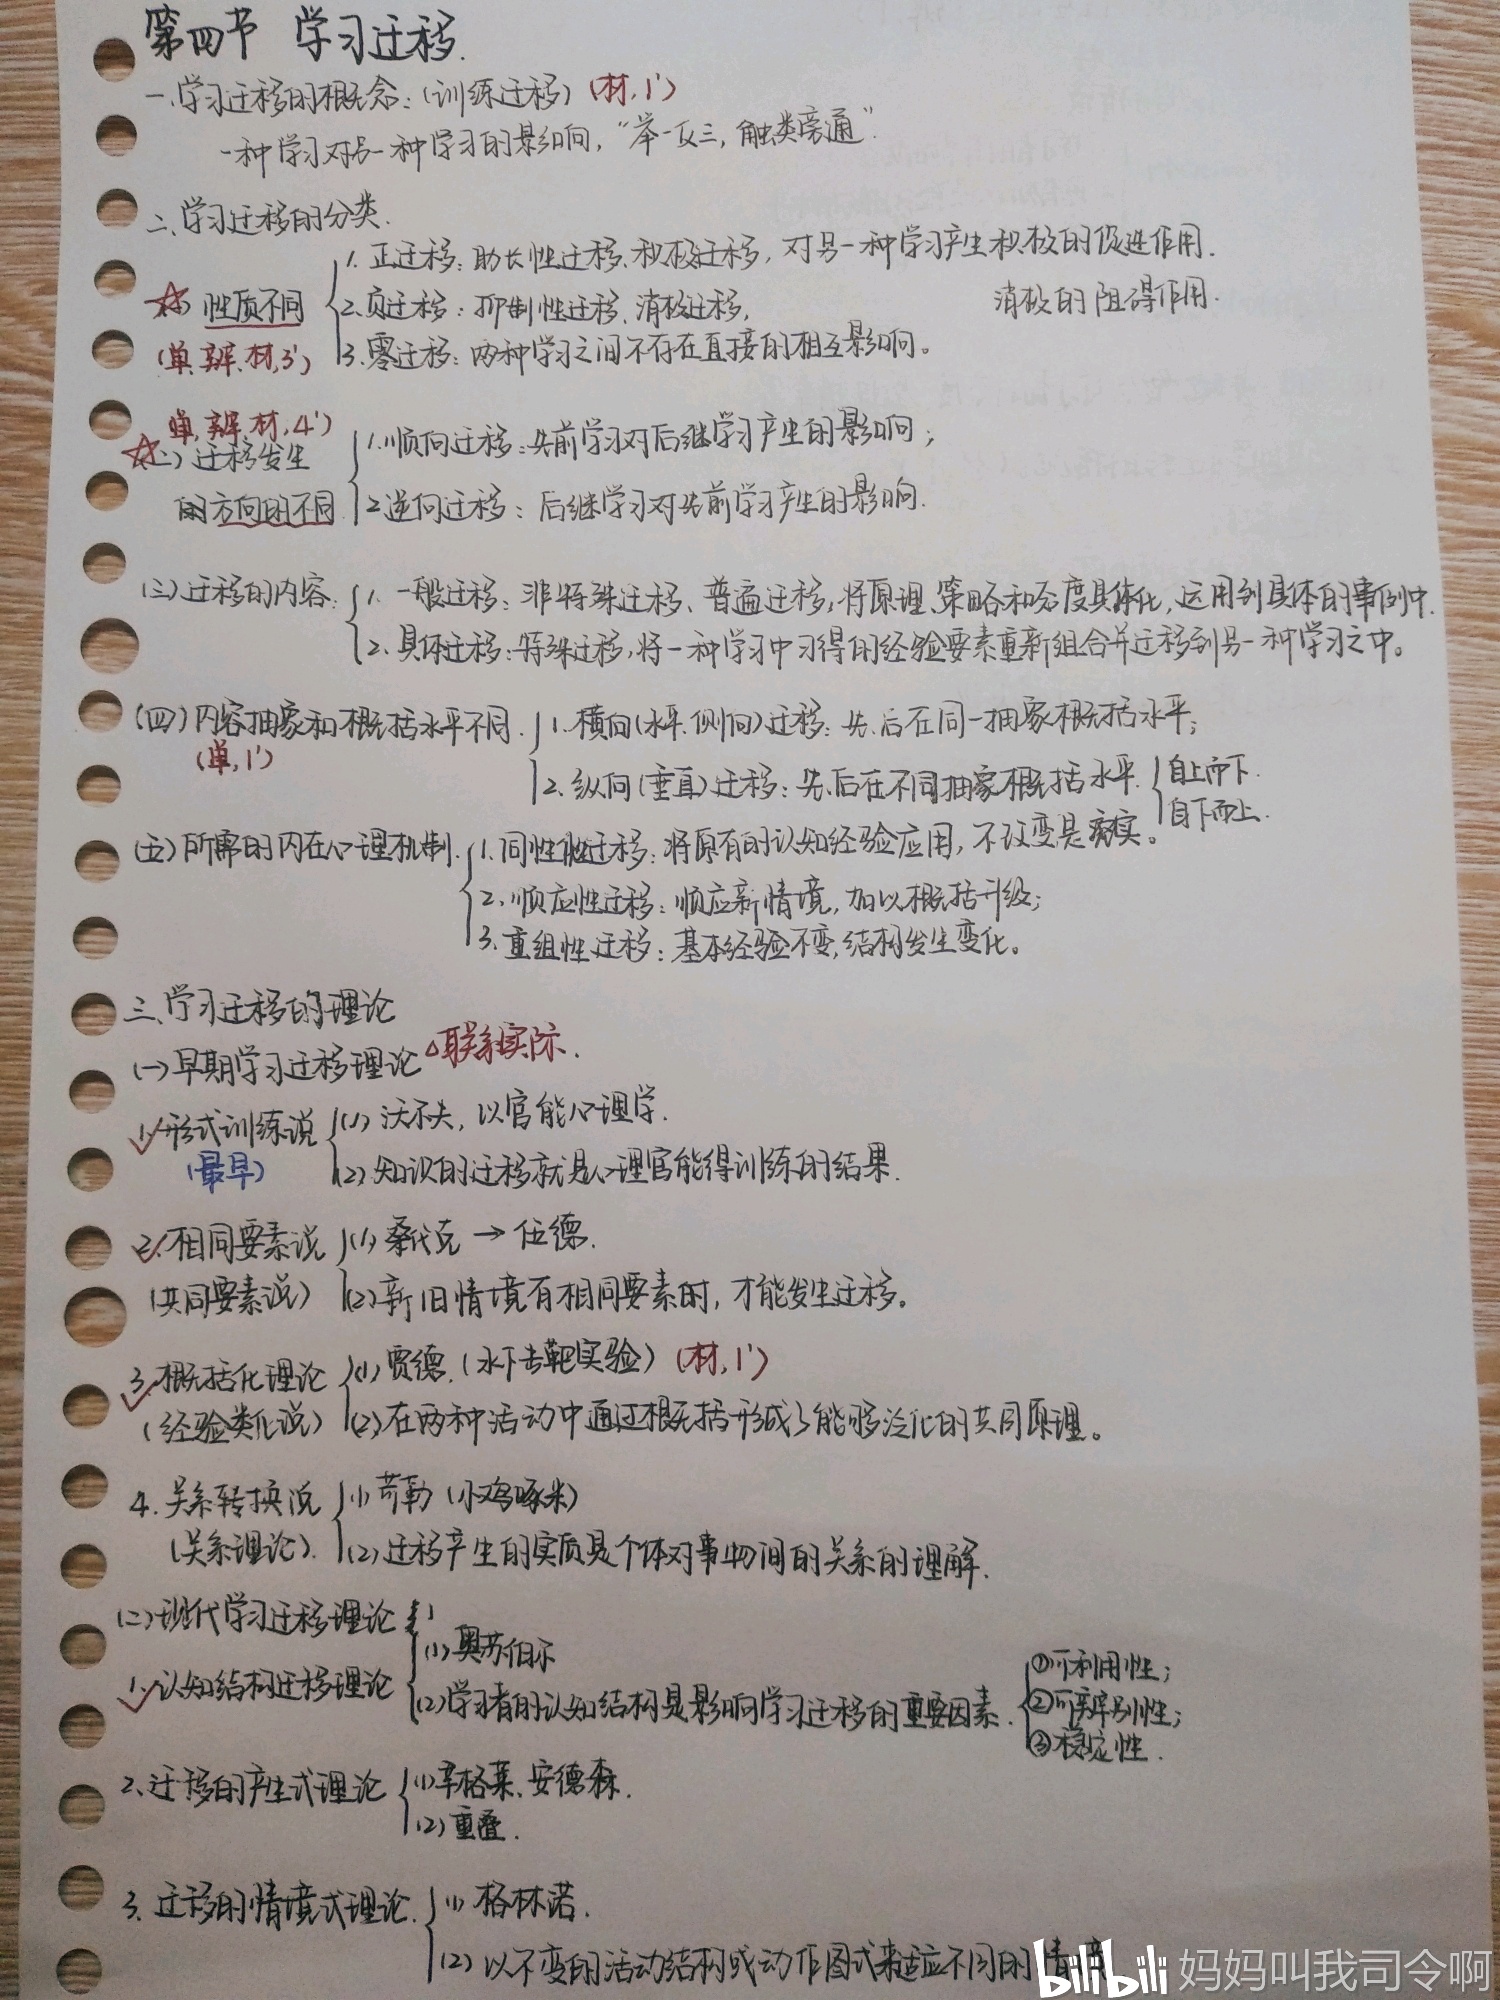 第四节 学习迁移.
一、学习迁移的概念:(训练迁移)(材,1')
一种学习对另一种学习的影响,“举一反三,触类旁通”.
二、学习迁移的分类.
1. 正迁移:助长性迁移、积极迁移,对另一种学习产生积极的促进作用.
性质不同 2.负迁移:抑制性迁移、消极迁移, 消极的阻碍作用.
(单,辨,材,3') 3.零迁移:两种学习之间不存在直接的相互影响。
(单,辨,材,4')
(二)迁移发生 1.顺向迁移:先前学习对后继学习产生的影响;
的方向的不同 2逆向迁移:后继学习对先前学习产生的影响.
(三)迁移的内容. 1. 一般迁移:非特殊迁移、普遍迁移,将原理、策略和态度具体化,运用到具体的事例中.
2.具体迁移:特殊迁移,将一种学习中习得的经验要素重新组合并迁移到另一种学习之中。
(四)内容抽象和概括水平不同. 1.横向(水平.侧向)迁移:先、后在同一抽象概括水平;
(单,1')
2.纵向(垂直)迁移:先、后在不同抽象概括水平. 自上而下.
自下而上.
(五)所需的内在心理机制. 1.同性化迁移:将原有的认知经验应用,不改变是充实。
2.顺应性迁移:顺应新情境,加以概括升级;
3.重组性迁移:基本经验不变,结构发生变化。
三、学习迁移的理论
(一)早期学习迁移理论 △联系实际.
1.形式训练说 (1)沃尔夫,以官能心理学.
(最早) (2)知识的迁移就是心理官能得训练的结果.
2.相同要素说 (1)桑代克→伍德.
(共同要素说) (2)新旧情境有相同要素时,才能发生迁移。
3.概括化理论 (1)贾德.(水下击靶实验)(材,1')
(经验类化说) (2)在两种活动中通过概括形成了能够泛化的共同原理。
4.关系转换说 (1)苛勒(小鸡啄米)
(关系理论). (2)迁移产生的实质是个体对事物间的关系的理解.
(二)现代学习迁移理论
(1)奥苏伯尔
1.认知结构迁移理论 (2)学习者的认知结构是影响学习迁移的重要因素. ①可利用性;
②可辨别性;
③稳定性.
2.迁移的产生式理论 (1)辛格莱、安德森.
(2)重叠.
3.迁移的情境式理论. (1)格林诺.
(2)以不变的活动结构或动作图式来适应不同的情境
bilibili 妈妈叫我司令啊